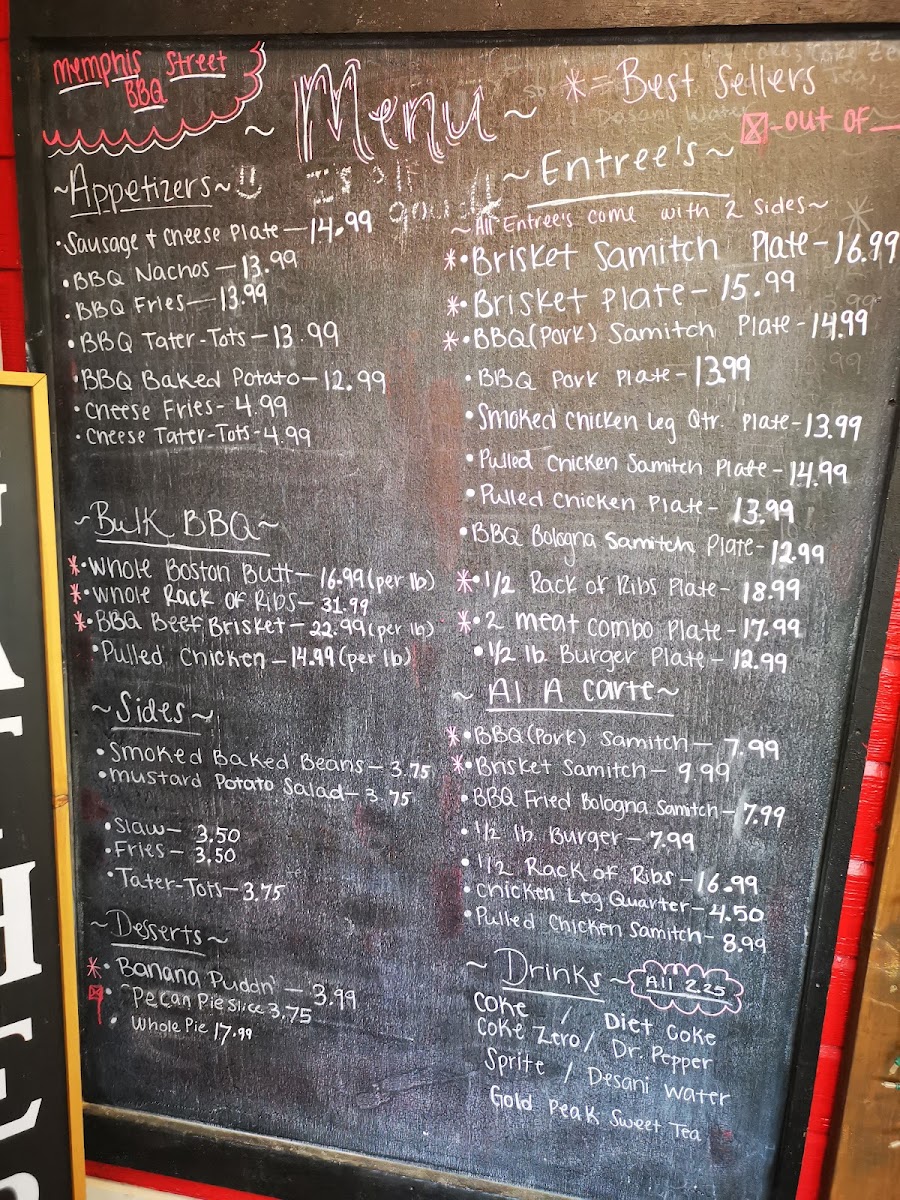 Memphis Street
BBQ
~ Menu ~
* = Best Sellers
-out of
~Appetizers~
• Sausage + Cheese Plate — 14.99
• BBQ Nachos — 13.99
• BBQ Fries — 13.99
• BBQ Tater-Tots — 13.99
• BBQ Baked Potato — 12.99
• Cheese Fries - 4.99
• Cheese Tater-Tots - 4.99
~Bulk BBQ~
*• Whole Boston Butt — 16.99 (per lb)
*• Whole Rack of Ribs — 31.99
*• BBQ Beef Brisket — 22.99 (per lb)
• Pulled Chicken — 14.99 (per lb)
~Sides~
• Smoked Baked Beans — 3.75
• Mustard Potato Salad — 3.75
• Slaw — 3.50
• Fries — 3.50
• Tater-Tots — 3.75
~Desserts~
*• Banana Puddin' — 3.99
• Pecan Pie Slice 3.75
• Whole Pie 17.99
~ Entree's ~
~All Entree's come with 2 sides~
*• Brisket Samitch Plate - 16.99
*• Brisket Plate - 15.99
*• BBQ (Pork) Samitch Plate - 14.99
• BBQ Pork Plate - 13.99
• Smoked Chicken Leg Qtr. Plate - 13.99
• Pulled Chicken Samitch Plate - 14.99
• Pulled Chicken Plate - 13.99
• BBQ Bologna Samitch Plate - 12.99
*• 1/2 Rack of Ribs Plate - 18.99
*• 2 meat combo Plate - 17.99
• 1/2 lb Burger Plate - 12.99
~ Al A Carte ~
*• BBQ (Pork) Samitch — 7.99
*• Brisket Samitch — 9.99
• BBQ Fried Bologna Samitch - 7.99
• 1/2 lb. Burger - 7.99
• 1/2 Rack of Ribs - 16.99
• Chicken Leg Quarter - 4.50
• Pulled Chicken Samitch - 8.99
~ Drinks ~ All 2.25
Coke / Diet Coke
Coke Zero / Dr. Pepper
Sprite / Desani Water
Gold Peak Sweet Tea